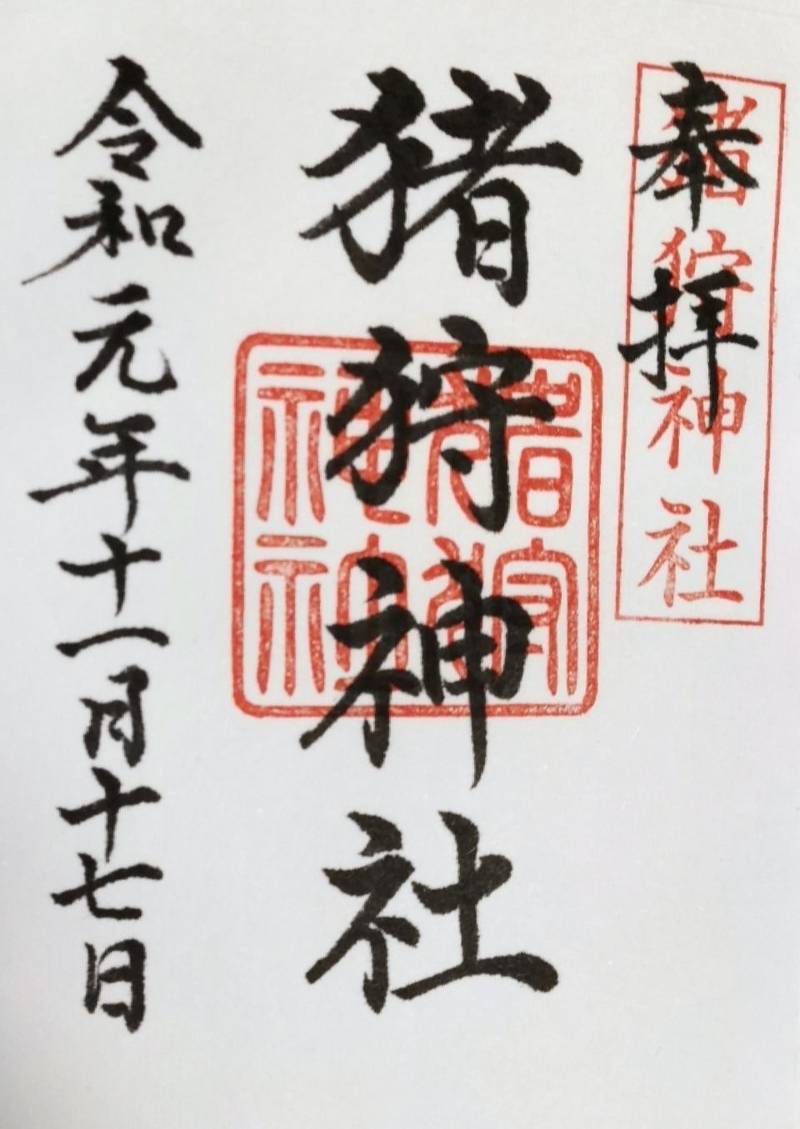 奉拝
猪狩神社
猪狩神社
令和元年十一月十七日